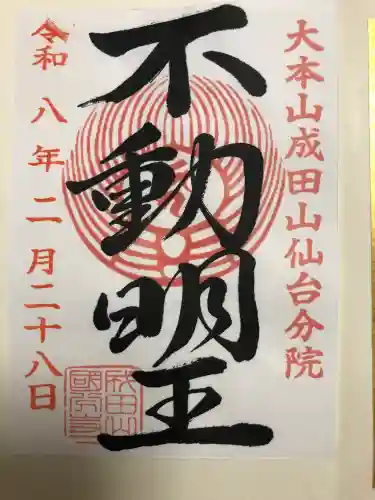 大本山成田山仙台分院
不動明王
令和八年二月二十八日